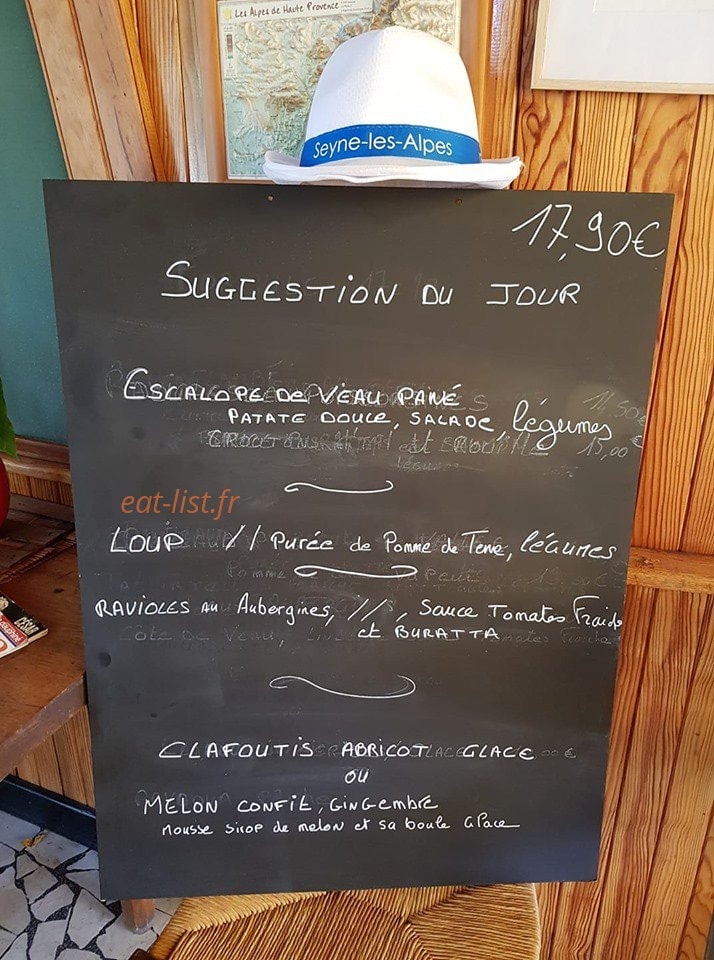 Les Alpes de Haute Provence
Seyne-les-Alpes
17,90€
SUGGESTION DU JOUR
ESCALOPE DE VEAU PANÉ
PATATE DOUCE, SALADE, légumes
14,50€
15,00€
eat-list.fr
LOUP // Purée de Pomme de Terre, légumes
RAVIOLES AU Aubergines, //, Sauce Tomates Fraich
et BURATTA
CLAFOUTIS ABRICOT GLACE
OU
MELON CONFIT, GINGEMBRE
mousse sirop de melon et sa boule Glace